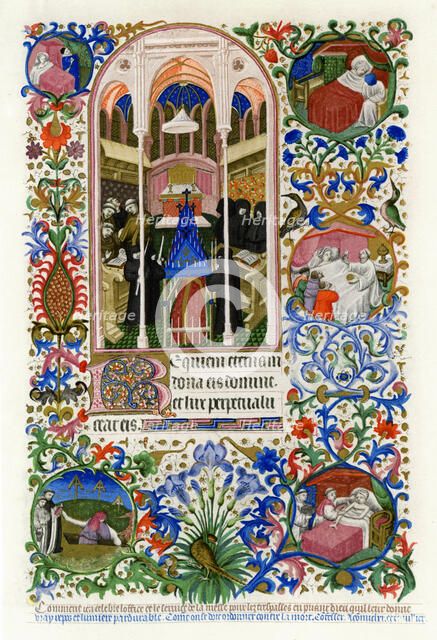 Requiem eternam
dona eis domine
et lux perpetua lu
ceat eis.
Comment len celebre loffice et le service de la messe pour les trespasses en priant dieu quil leur donne
vray repos et lumiere pardurable. Come on se doit ordonner contre la mort.
Heritage
Heritage
Heritage
Heritage
Heritage